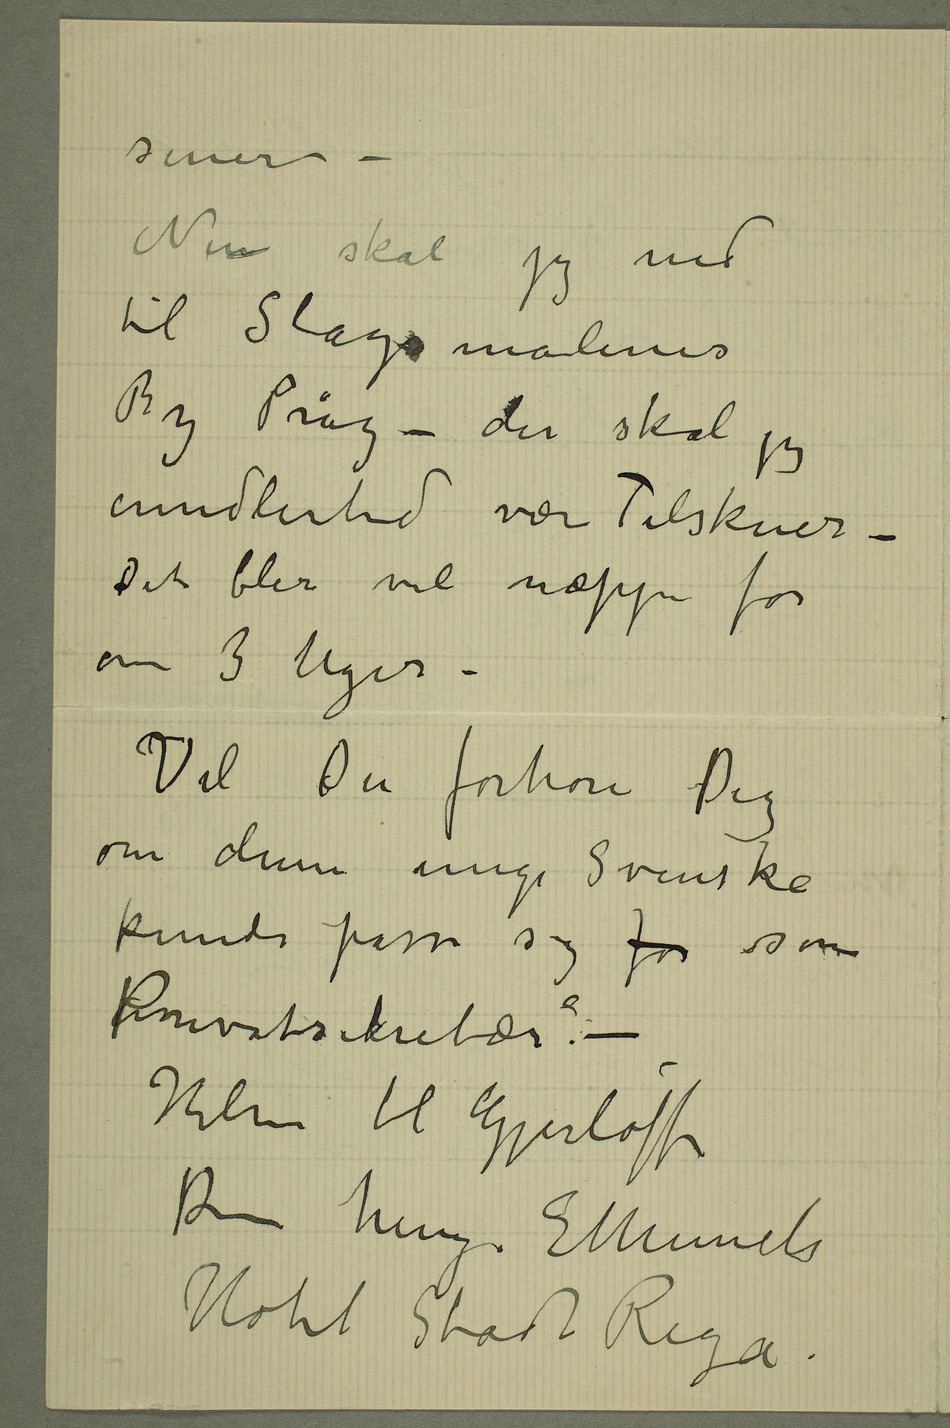 senere –
Nu skal jeg ned
til Slagsmålenes
By Pråg – der skal jeg
imidlertid være Tilskuer –
Det blir vel næppe før
om 3 Uger –
Vil Du forhøre Dig
om denne unge Svenske
kunde passe sig for som
Privatsekretær? –
Hilsen til Gjerløff
Din heng. E Munch
Hotel Stadt Riga.